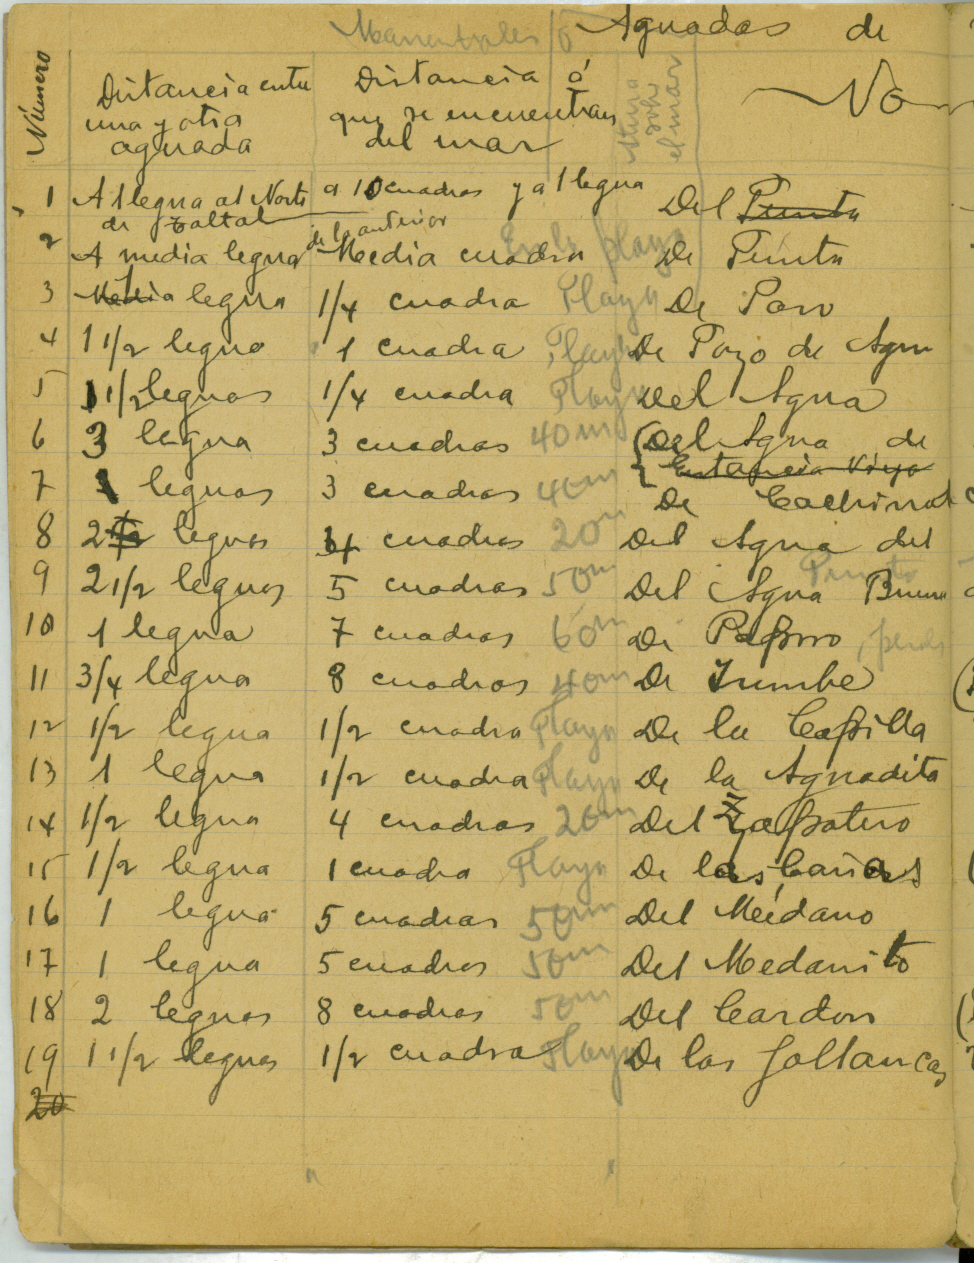 Manantiales ó Aguadas de
Número
Distancia entre una y otra aguada
Distancia á que se encuentran del mar
Altura sobre el mar
No
1 A 1 legua al Norte de Taltal a 10 cuadras y a 1 legua Del Punta
2 A media legua de la anterior Media cuadra En la playa De Punta
3 Media 1 legua 1/4 cuadra Playa De
4 1 1/2 legua 1 cuadra Playa De Pozo de Agua
5 1 1/2 leguas 1/4 cuadra Playa Del Agua
6 3 legua 3 cuadras 40m (Del Agua de
Estancia Vieja
7 leguas 3 cuadras 40m De Cachinal
8 2 leguas 4 cuadras 20m Del Agua del
Punta
9 2 1/2 leguas 5 cuadras 50m Del Agua Buena
10 1 legua 7 cuadras 60m De
11 3/4 legua 8 cuadras 40m De Tumbe
12 1/2 legua 1/2 cuadra Playa De la Capilla
13 1 legua 1/2 cuadra Playa De la Aguadita
14 1/2 legua 4 cuadras 20m Del Zapatero
15 1/2 legua 1 cuadra Playa De las Cañas
16 1 legua 5 cuadras 50m Del Médano
17 1 legua 5 cuadras 50m Del Medanito
18 2 leguas 8 cuadras 50m Del Cardon
19 1 1/2 leguas 1/2 cuadra Playa De las
20